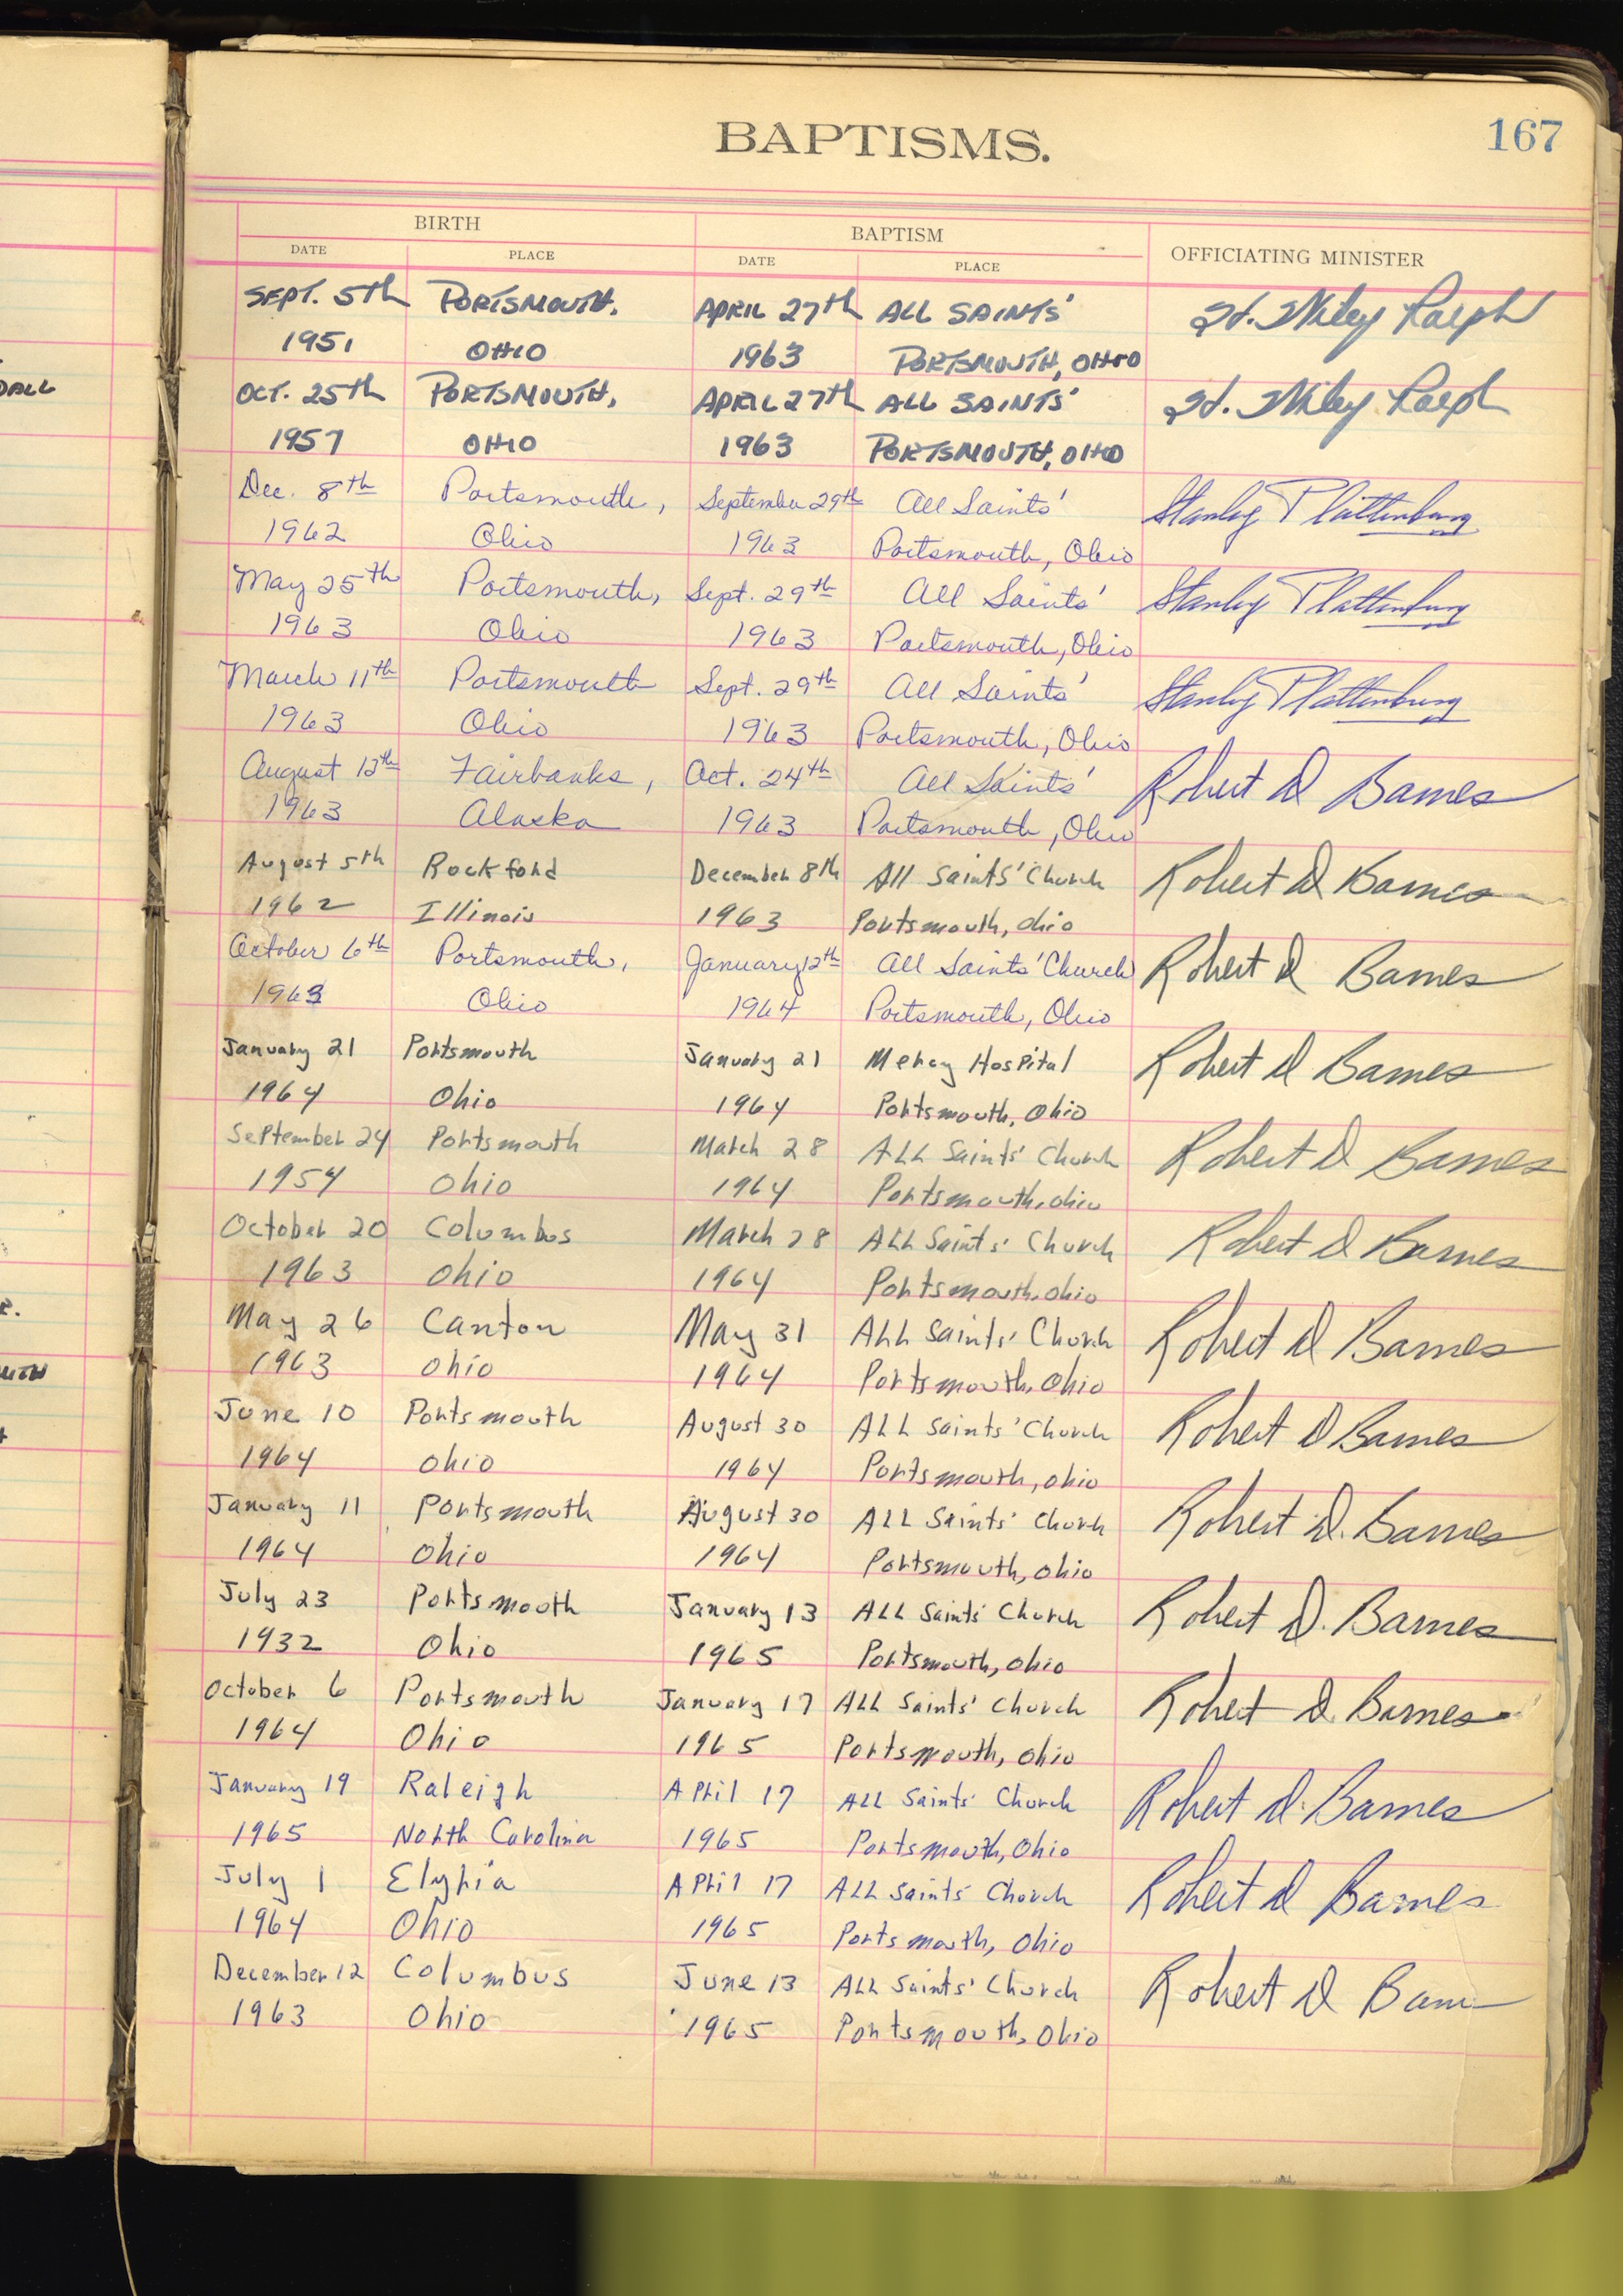 BAPTISMS.
167
BIRTH BAPTISM OFFICIATING MINISTER
DATE PLACE DATE PLACE
SEPT. 5th PORTSMOUTH, APRIL 27th ALL SAINTS' H. Wiley Ralph
1951 OHIO 1963 PORTSMOUTH, OHIO
OCT. 25th PORTSMOUTH, APRIL 27th ALL SAINTS' H. Wiley Ralph
1957 OHIO 1963 PORTSMOUTH, OHIO
Dec. 8th Portsmouth, September 29th All Saints' Stanley Plattenburg
1962 Ohio 1963 Portsmouth, Ohio
May 25th Portsmouth, Sept. 29th All Saints' Stanley Plattenburg
1963 Ohio 1963 Portsmouth, Ohio
March 11th Portsmouth Sept. 29th All Saints' Stanley Plattenburg
1963 Ohio 1963 Portsmouth, Ohio
August 13th Fairbanks, Oct. 24th All Saints' Robert D Barnes
1963 Alaska 1963 Portsmouth, Ohio
August 5th Rockford December 8th All Saints' Church Robert D Barnes
1962 Illinois 1963 Portsmouth, Ohio
October 6th Portsmouth, January 12th All Saints' Church Robert D Barnes
1963 Ohio 1964 Portsmouth, Ohio
January 21 Portsmouth January 21 Mercy Hospital Robert D Barnes
1964 Ohio 1964 Portsmouth, Ohio
September 24 Portsmouth March 28 ALL Saints' Church Robert D Barnes
1954 Ohio 1964 Portsmouth, Ohio
October 20 Columbus March 28 ALL Saints' Church Robert D Barnes
1963 Ohio 1964 Portsmouth, Ohio
May 26 Canton May 31 ALL Saints' Church Robert D Barnes
1963 Ohio 1964 Portsmouth, Ohio
June 10 Portsmouth August 30 ALL Saints' Church Robert D Barnes
1964 Ohio 1964 Portsmouth, Ohio
January 11 Portsmouth August 30 ALL Saints' Church Robert D. Barnes
1964 Ohio 1964 Portsmouth, Ohio
July 23 Portsmouth January 13 ALL Saints' Church Robert D. Barnes
1932 Ohio 1965 Portsmouth, Ohio
October 6 Portsmouth January 17 ALL Saints' Church Robert D. Barnes
1964 Ohio 1965 Portsmouth, Ohio
January 19 Raleigh April 17 ALL Saints' Church Robert D. Barnes
1965 North Carolina 1965 Portsmouth, Ohio
July 1 Elyria April 17 ALL Saints' Church Robert D Barnes
1964 Ohio 1965 Portsmouth, Ohio
December 12 Columbus June 13 ALL Saints' Church Robert D Barnes
1963 Ohio 1965 Portsmouth, Ohio